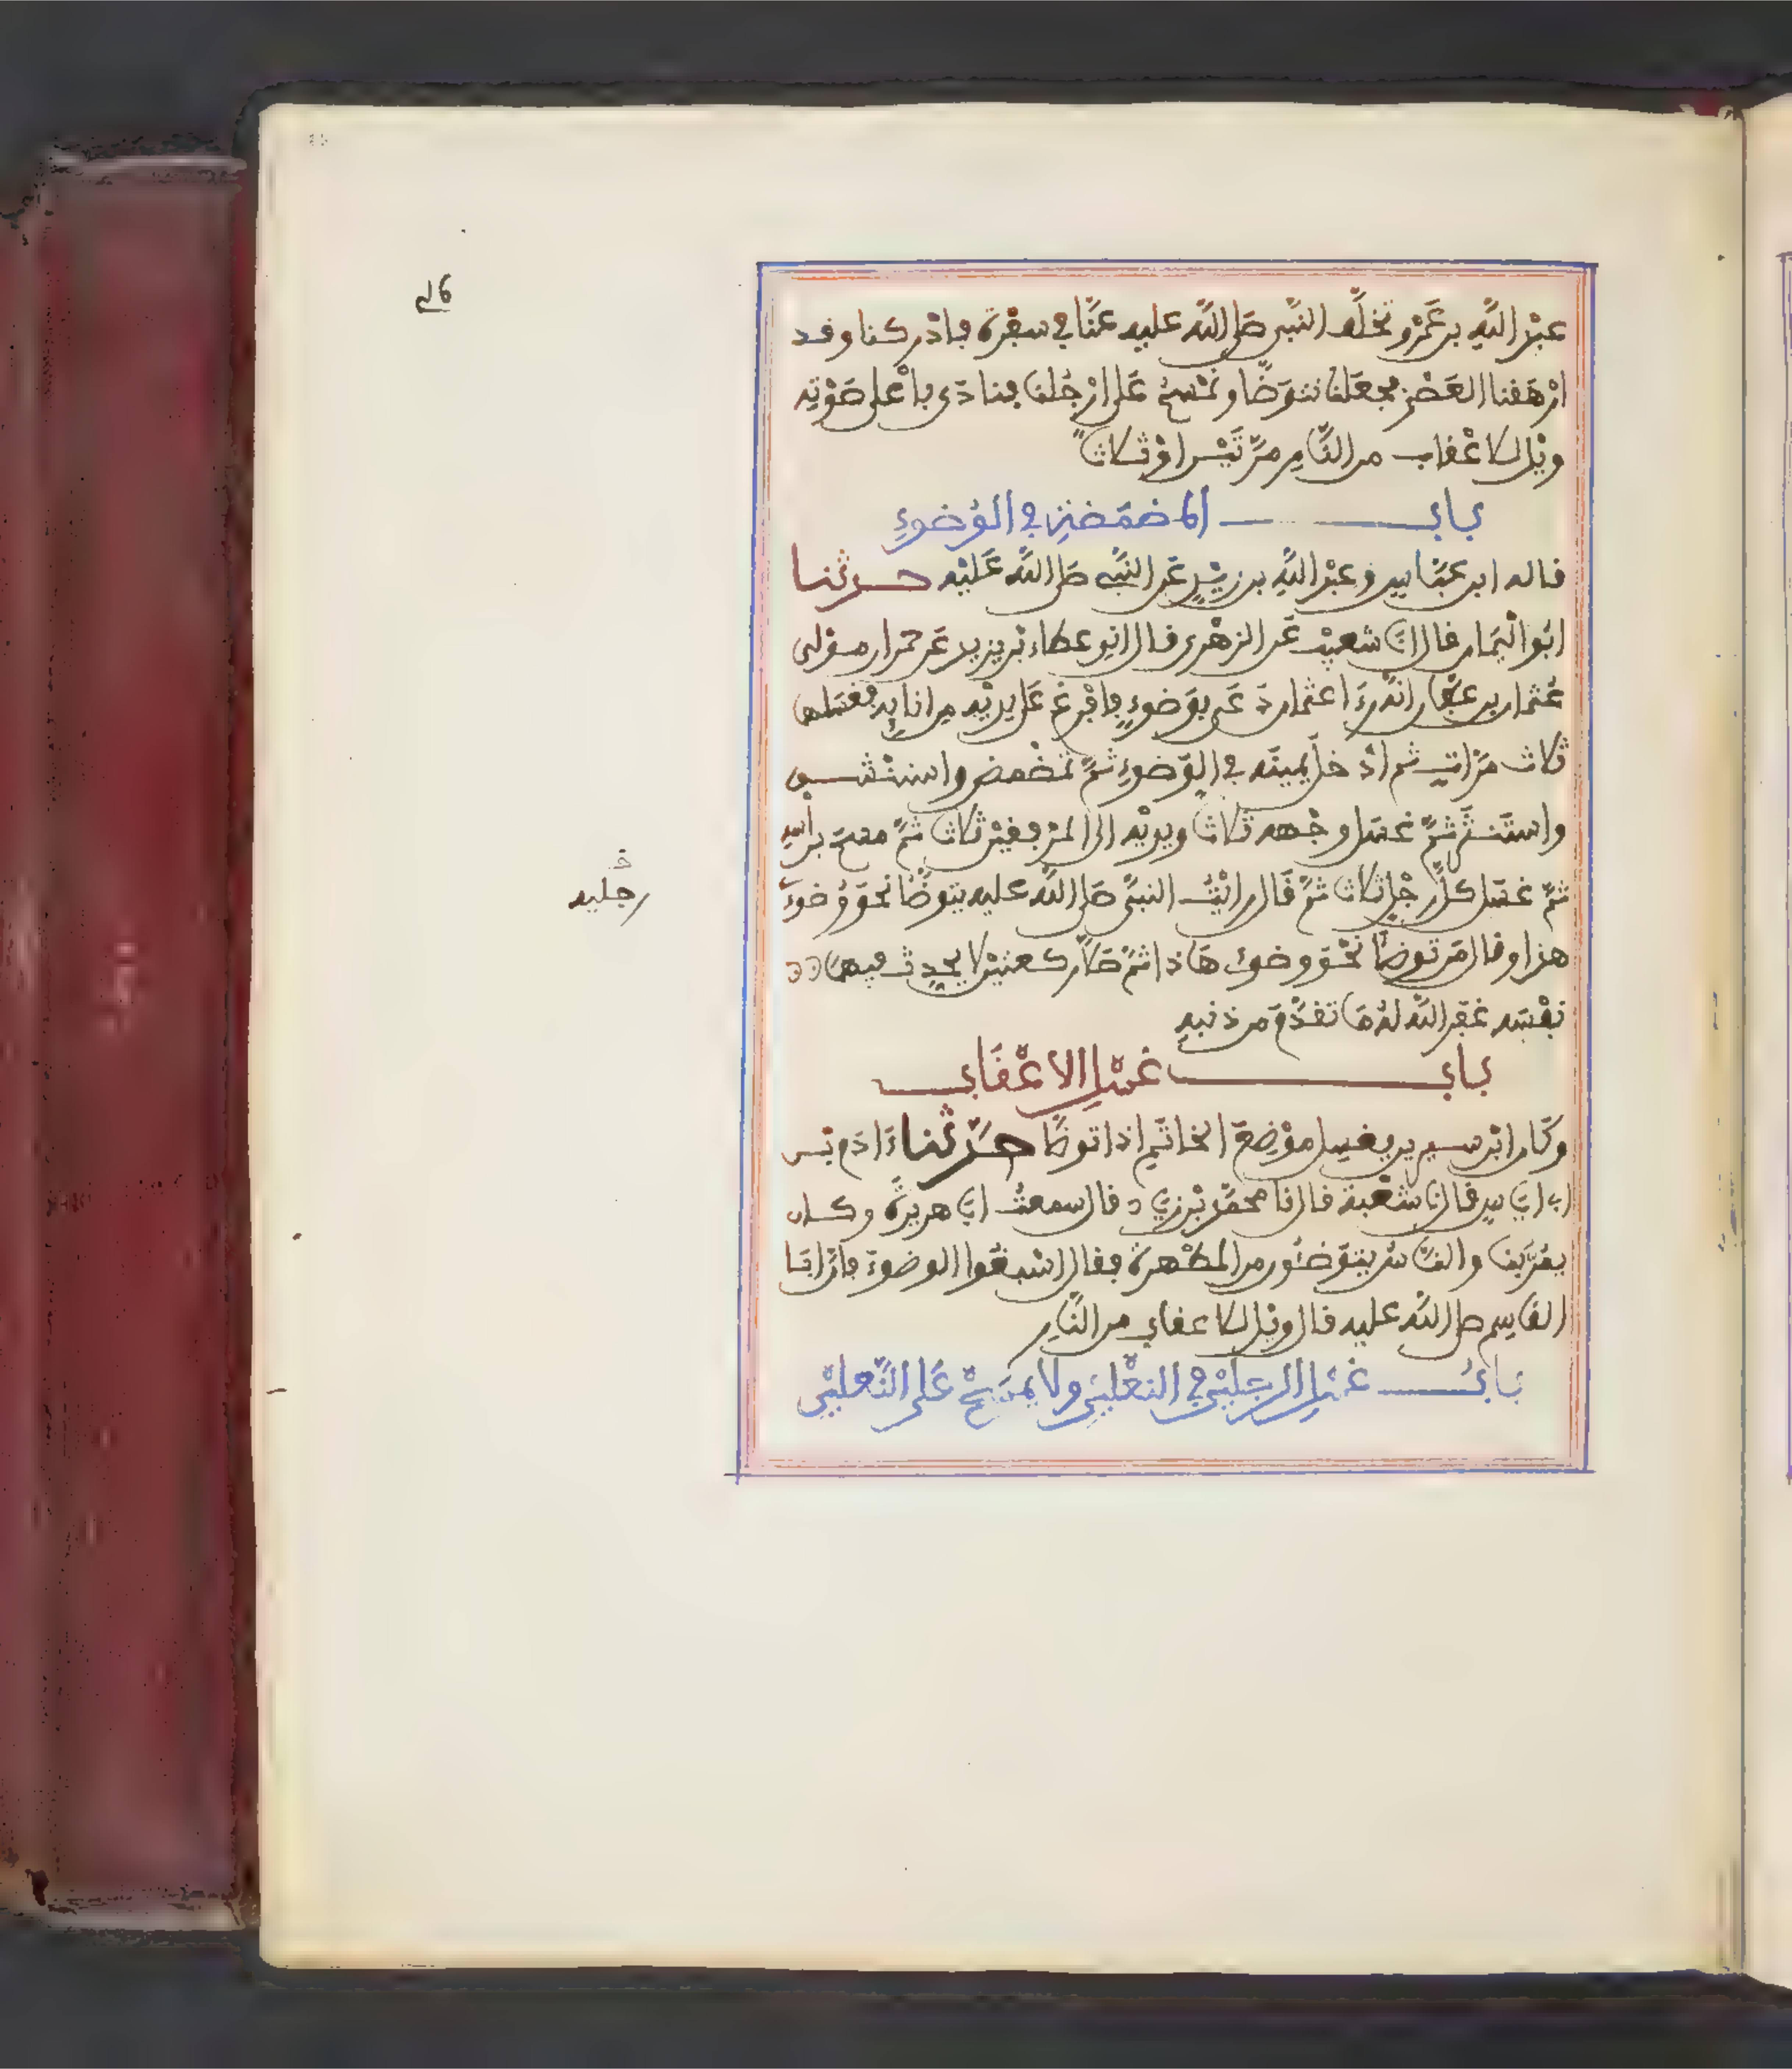 عبد الله بن عمرو تخلف النبي صلى الله عليه عنا في سفرة فأدركنا وقد
أرهقنا العصر فجعلنا نتوضأ ونمسح على أرجلنا فنادى بأعلى صوته
ويل للأعقاب من النار مرتين أو ثلاثا
باب المضمضة في الوضوء
قاله ابن عباس وعبد الله بن زيد عن النبي صلى الله عليه حدثنا
أبو اليمان قال انا شعيب عن الزهري قال اني عطاء بن يزيد عن حمران مولى
عثمان بن عفان أنه رءا عثمان دعى بوضوء فأفرغ على يديه من إنائه فغسلهما
ثلاث مرات ثم أدخل يمينه في الوضوء ثم تمضمض واستنشق
واستنثر ثم غسل وجهه ثلاثا ويديه إلى المرفقين ثلاثا ثم مسح برأسه
ثم غسل كل رجل ثلاثا ثم قال رأيت النبي صلى الله عليه يتوضأ نحو وضوءي
هذا وقال من توضأ نحو وضوءي هاذا ثم صلى ركعتين لا يحدث فيهما
نفسه غفر الله له ما تقدم من ذنبه
باب غسل الأعقاب
وكان ابن سيرين يغسل موضع الخاتم إذا توضأ حدثنا ءادم بن
أبي اياس قال نا شعبة قال نا محمد بن زياد قال سمعت أبا هريرة وكان
يمر بنا والناس يتوضئون من المطهرة فقال أسبغوا الوضوء فإن أبا
القاسم صلى الله عليه قال ويل للأعقاب من النار
باب غسل الرجلين في النعلين ولا يمسح على النعلين
رجليه